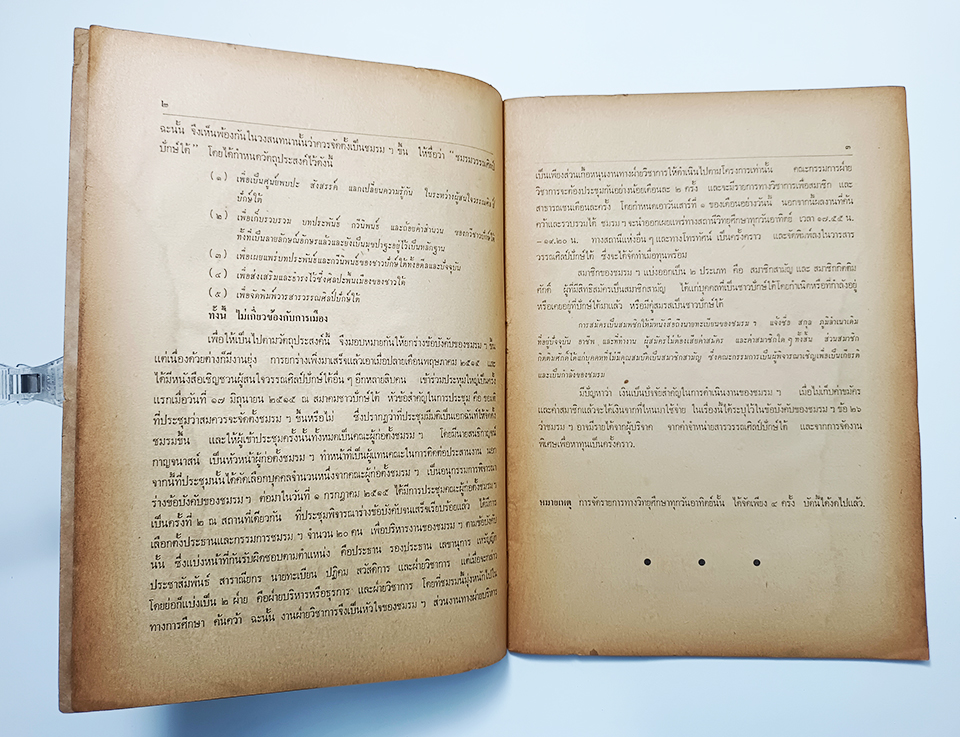 ๒
ฉะนั้น จึงเห็นพ้องกันในวงสนทนานั้นว่าควรจัดตั้งเป็นชมรม ฯ ขึ้น ให้ชื่อว่า "ชมรมวรรณศิลป์
ปักษ์ใต้" โดยได้กำหนดวัตถุประสงค์ไว้ดังนี้
(๑) เพื่อเป็นศูนย์พบปะ สังสรรค์ แลกเปลี่ยนความรู้กัน ในระหว่างผู้สนใจวรรณศิลป์
ปักษ์ใต้
(๒) เพื่อเก็บรวบรวม บทประพันธ์ กวีนิพนธ์ และถ้อยคำสำนวน ของกวีชาวปักษ์ใต้
ทั้งที่เป็นลายลักษณ์อักษรแล้วและยังเป็นมุขปาฐะอยู่ไว้เป็นหลักฐาน
(๓) เพื่อเผยแพร่บทประพันธ์และกวีนิพนธ์ของชาวปักษ์ใต้ทั้งอดีตและปัจจุบัน
(๔) เพื่อส่งเสริมและธำรงไว้ซึ่งศิลปะพื้นเมืองของชาวใต้
(๕) เพื่อจัดพิมพ์วารสารวรรณศิลป์ปักษ์ใต้
ทั้งนี้ ไม่เกี่ยวข้องกับการเมือง
เพื่อให้เป็นไปตามวัตถุประสงค์นี้ จึงมอบหมายกันให้ยกร่างข้อบังคับของชมรม ฯ ขึ้น
แต่เนื่องด้วยต่างก็มีงานยุ่ง การยกร่างเพิ่งมาเสร็จแล้วเอาเมื่อปลายเดือนพฤษภาคม ๒๕๑๕ และ
ได้มีหนังสือเชิญชวนผู้สนใจวรรณศิลป์ปักษ์ใต้อื่น ๆ อีกหลายสิบคน เข้าร่วมประชุมใหญ่เป็นครั้ง
แรกเมื่อวันที่ ๑๗ มิถุนายน ๒๕๑๕ ณ สมาคมชาวปักษ์ใต้ หัวข้อสำคัญในการประชุม คือ ขอมติ
ที่ประชุมว่าสมควรจะจัดตั้งชมรม ฯ ขึ้นหรือไม่ ซึ่งปรากฏว่าที่ประชุมมีมติเป็นเอกฉันท์ให้จัดตั้ง
ชมรมขึ้น และให้ผู้เข้าประชุมครั้งนั้นทั้งหมดเป็นคณะผู้ก่อตั้งชมรม ฯ โดยมีนายสนธิกาญจน์
กาญจนาสน์ เป็นหัวหน้าผู้ก่อตั้งชมรม ฯ ทำหน้าที่เป็นผู้แทนคณะในการติดต่อประสานงาน นอก
จากนี้ที่ประชุมนั้นได้คัดเลือกบุคคลจำนวนหนึ่งจากคณะผู้ก่อตั้งชมรม ฯ เป็นอนุกรรมการพิจารณา
ร่างข้อบังคับของชมรม ฯ ต่อมาในวันที่ ๑ กรกฎาคม ๒๕๑๕ ได้มีการประชุมคณะผู้ก่อตั้งชมรม ฯ
เป็นครั้งที่ ๒ ณ สถานที่เดียวกัน ที่ประชุมพิจารณาร่างข้อบังคับจนเสร็จเรียบร้อยแล้ว ได้มีการ
เลือกตั้งประธานและกรรมการชมรม ฯ จำนวน ๒๐ คน เพื่อบริหารงานของชมรม ฯ ตามข้อบังคับ
นั้น ซึ่งแบ่งหน้าที่กันรับผิดชอบตามตำแหน่ง คือประธาน รองประธาน เลขานุการ เหรัญญิก
ประชาสัมพันธ์ สาราณียกร นายทะเบียน ปฏิคม สวัสดิการ และฝ่ายวิชาการ แต่เมื่อจะกล่าว
โดยย่อก็แบ่งเป็น ๒ ฝ่าย คือฝ่ายบริหารหรือธุรการ และฝ่ายวิชาการ โดยที่ชมรมนี้มุ่งหนักไปใน
ทางการศึกษา ค้นคว้า ฉะนั้น งานฝ่ายวิชาการจึงเป็นหัวใจของชมรม ฯ ส่วนงานทางฝ่ายบริหาร
๓
เป็นเพียงส่วนเกื้อหนุนงานทางฝ่ายวิชาการให้ดำเนินไปตามโครงการเท่านั้น คณะกรรมการฝ่าย
วิชาการจะต้องประชุมกันอย่างน้อยเดือนละ ๒ ครั้ง และจะมีรายการทางวิชาการเพื่อสมาชิก และ
สาธารณชนเดือนละครั้ง โดยกำหนดเอาวันเสาร์ที่ ๑ ของเดือนอย่างวันนี้ นอกจากนี้ผลงานที่ค้น
คว้าและรวบรวมได้ ชมรม ฯ จะนำออกเผยแพร่ทางสถานีวิทยุศึกษาทุกวันอาทิตย์ เวลา ๑๗.๕๕ น.
–๑๘.๒๐ น. ทางสถานีแห่งอื่น ๆ และทางโทรทัศน์ เป็นครั้งคราว และจัดพิมพ์ลงในวารสาร
วรรณศิลป์ปักษ์ใต้ ซึ่งจะได้จัดทำเมื่อทุนพร้อม
สมาชิกของชมรม ฯ แบ่งออกเป็น ๒ ประเภท คือ สมาชิกสามัญ และ สมาชิกกิตติม
ศักดิ์ ผู้ที่มีสิทธิสมัครเป็นสมาชิกสามัญ ได้แก่บุคคลที่เป็นชาวปักษ์ใต้โดยกำเนิดหรือที่กำลังอยู่
หรือเคยอยู่ที่ปักษ์ใต้มาแล้ว หรือมีคู่สมรสเป็นชาวปักษ์ใต้
การสมัครเป็นสมาชิกให้มีหนังสือถึงนายทะเบียนของชมรม ฯ แจ้งชื่อ สกุล ภูมิลำเนาเดิม
ที่อยู่ปัจจุบัน อาชีพ และที่ทำงาน ผู้สมัครไม่ต้องเสียค่าสมัคร และค่าสมาชิกใด ๆ ทั้งสิ้น ส่วนสมาชิก
กิตติมศักดิ์ได้แก่บุคคลที่ไม่มีคุณสมบัติเป็นสมาชิกสามัญ ซึ่งคณะกรรมการเป็นผู้พิจารณาเชิญเพื่อเป็นเกียรติ
และเป็นกำลังของชมรม
มีปัญหาว่า เงินเป็นปัจจัยสำคัญในการดำเนินงานของชมรม ฯ เมื่อไม่เก็บค่าสมัคร
และค่าสมาชิกแล้วจะได้เงินจากที่ไหนมาใช้จ่าย ในเรื่องนี้ได้ระบุไว้ในข้อบังคับของชมรม ฯ ข้อ ๒๖
ว่าชมรม ฯ อาจมีรายได้จากผู้บริจาค จากค่าจำหน่ายสารวรรณศิลป์ปักษ์ใต้ และจากการจัดงาน
พิเศษเพื่อหาทุนเป็นครั้งคราว.
หมายเหตุ การจัดรายการทางวิทยุศึกษาทุกวันอาทิตย์นั้น ได้จัดเพียง ๔ ครั้ง บัดนี้ได้งดไปแล้ว.